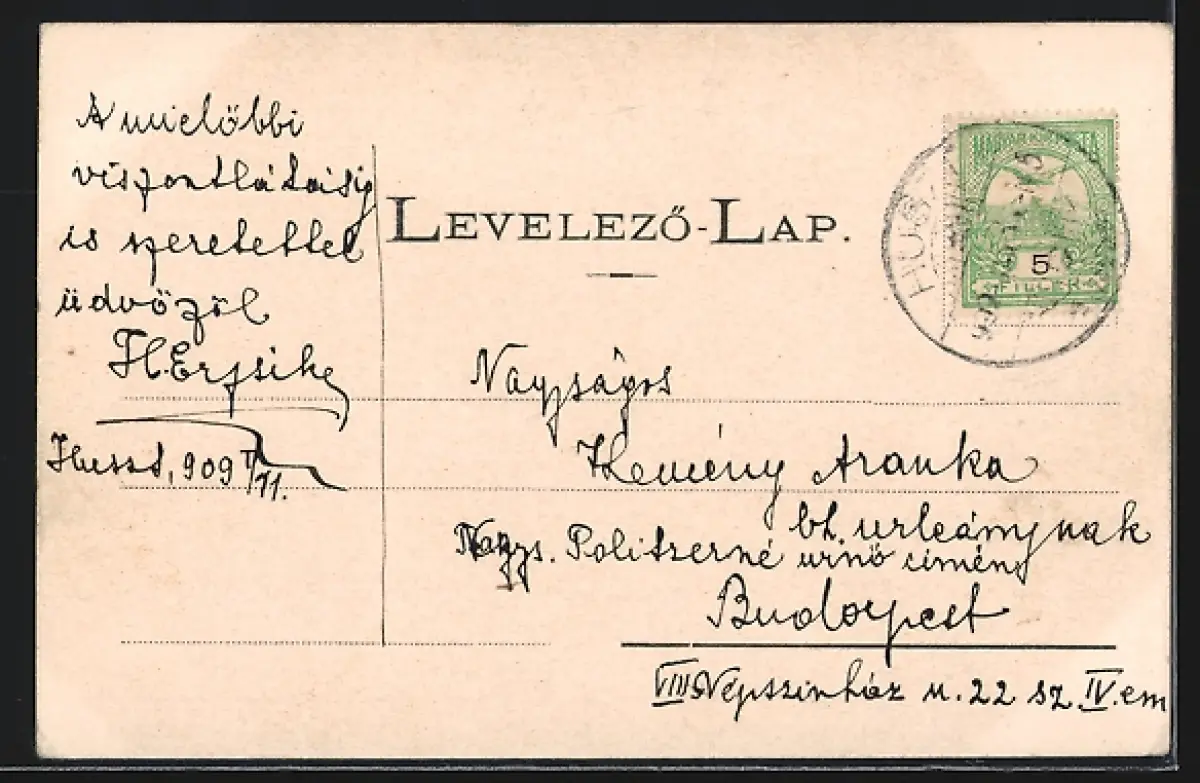 A mielőbbi
viszontlátásig
is szeretettel
üdvözöl
H.Erzsike
Huszt, 909 V/11.
LEVELEZŐ-LAP.
HUSZ
5
FILLER
Nagyságos
Kemény Aranka
bt. urleánynak
Nagys. Politzerné urnő címén
Budapest
VIII Népszinház u. 22 sz. IV. em